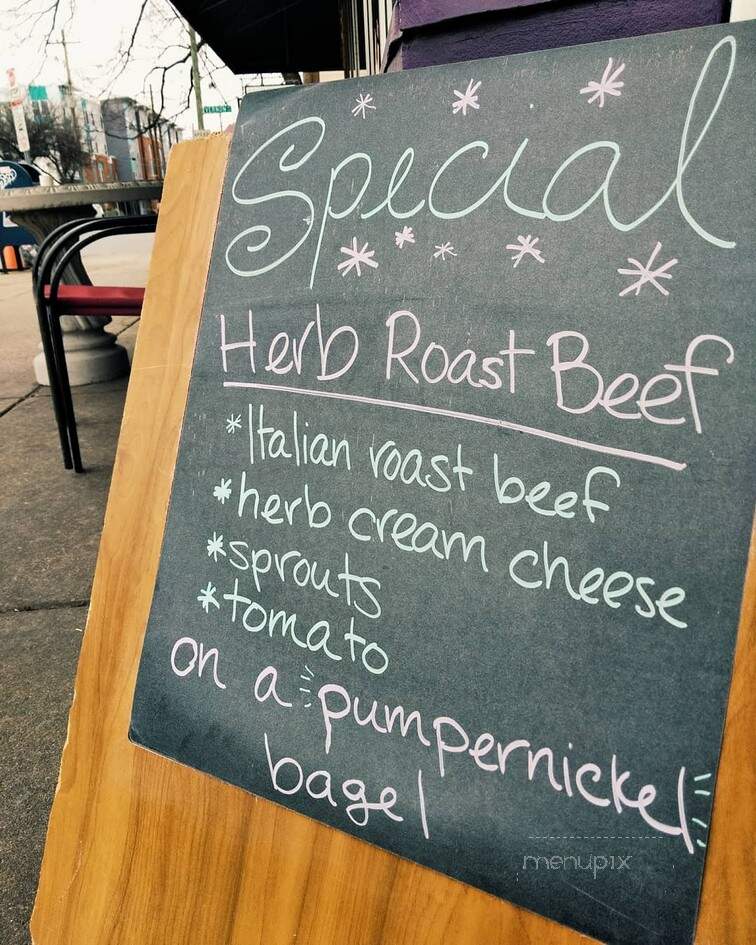 VERNON ST
Special
Herb Roast Beef
*Italian roast beef
*herb cream cheese
*sprouts
*tomato
on a pumpernickel
bagel
menupix